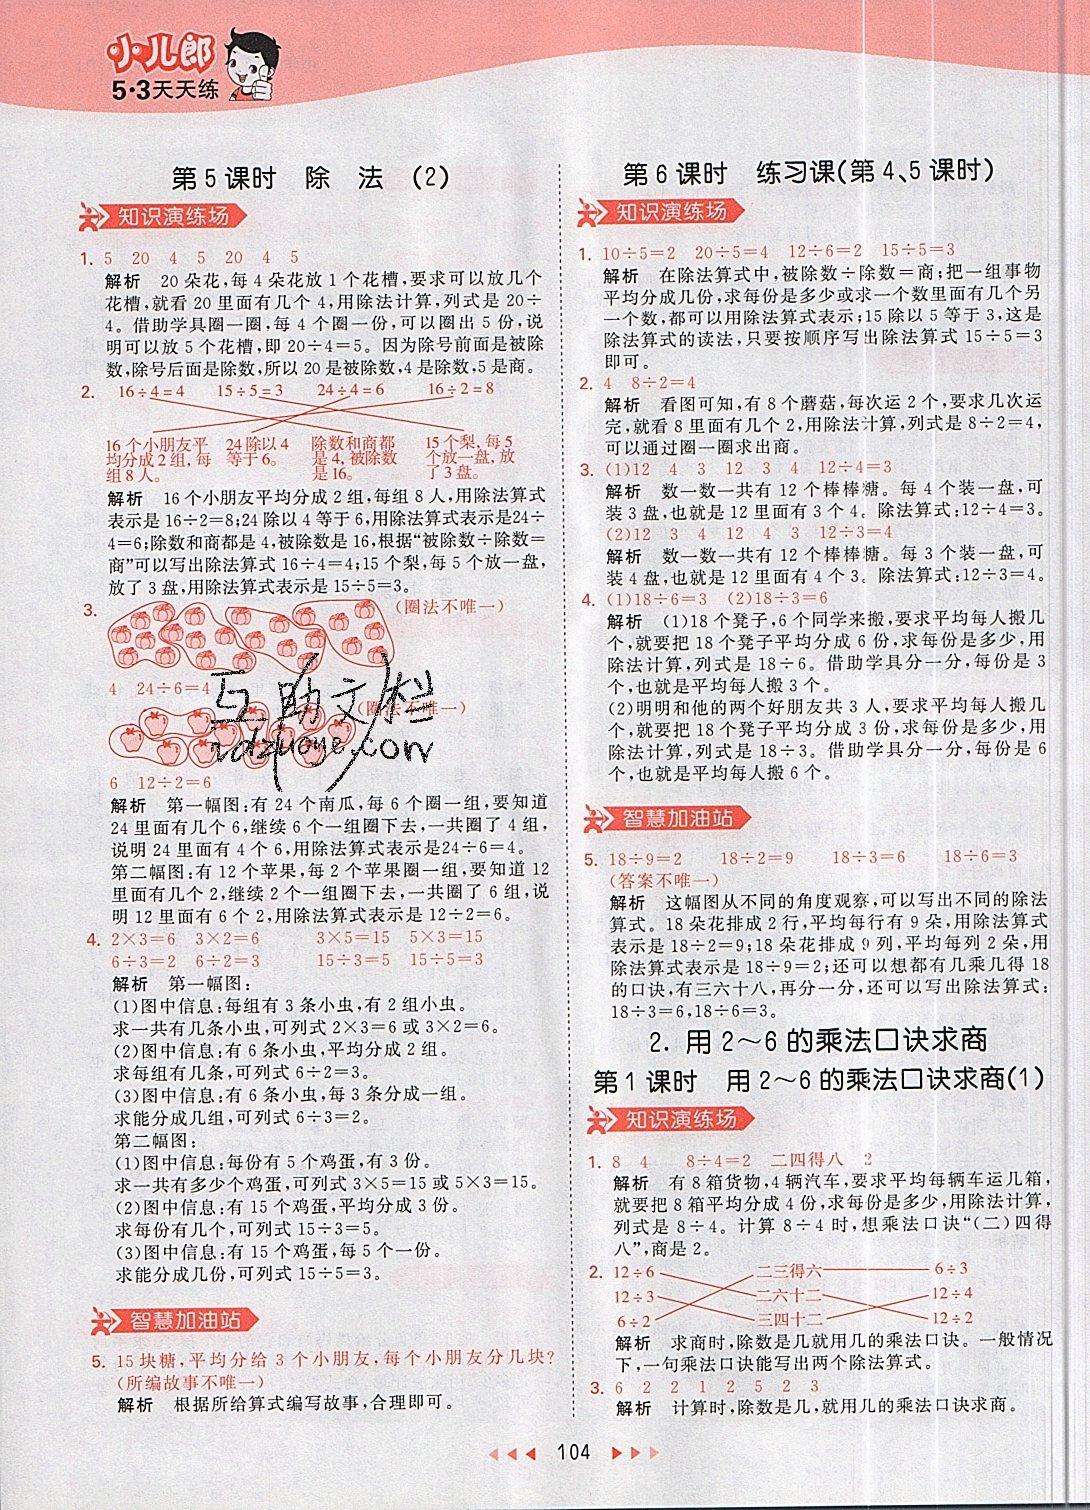 小儿郎
5·3天天练
第5课时 除 法 (2)
知识演练场
1. 5 20 4 5 20 4 5
解析 20朵花,每4朵花放1个花槽,要求可以放几个
花槽,就看20里面有几个4,用除法计算,列式是20÷
4。借助学具圈一圈,每4个圈一份,可以圈出5份,说
明可以放5个花槽,即20÷4=5。因为除号前面是被除
数,除号后面是除数,所以20是被除数,4是除数,5是商。
2. 16÷4=4 15÷5=3 24÷4=6 16÷2=8
16个小朋友平 24除以4 除数和商都 15个梨,每5
均分成2组,每 等于6。 是4,被除数 个放一盘,放
组8人。 是16。 了3盘。
解析 16个小朋友平均分成2组,每组8人,用除法算式
表示是16÷2=8;24除以4等于6,用除法算式表示是24÷
4=6;除数和商都是4,被除数是16,根据“被除数÷除数=
商”可以写出除法算式16÷4=4;15个梨,每5个放一盘,
放了3盘,用除法算式表示是15÷5=3。
3. (圈法不唯一)
4 24÷6=4
(圈法不唯一)
互助文档
icizuone.com
6 12÷2=6
解析 第一幅图:有24个南瓜,每6个圈一组,要知道
24里面有几个6,继续6个一组圈下去,一共圈了4组,
说明24里面有4个6,用除法算式表示是24÷6=4。
第二幅图:有12个苹果,每2个苹果圈一组,要知道12
里面有几个2,继续2个一组圈下去,一共圈了6组,说
明12里面有6个2,用除法算式表示是12÷2=6。
4. 2×3=6 3×2=6 3×5=15 5×3=15
6÷3=2 6÷2=3 15÷3=5 15÷5=3
解析 第一幅图:
(1)图中信息:每组有3条小虫,有2组。
求一共有几条小虫,可列式2×3=6或3×2=6。
(2)图中信息:有6条小虫,平均分成2组。
求每组有几条,可列式6÷2=3。
(3)图中信息:有6条小虫,每3条分成一组。
求能分成几组,可列式6÷3=2。
第二幅图:
(1)图中信息:每份有5个鸡蛋,有3份。
求一共有多少个鸡蛋,可列式3×5=15或5×3=15。
(2)图中信息:有15个鸡蛋,平均分成3份。
求每份有几个,可列式15÷3=5。
(3)图中信息:有15个鸡蛋,每5个一份。
求能分成几份,可列式15÷5=3。
智慧加油站
5. 15块糖,平均分给3个小朋友,每个小朋友分几块?
(所编故事不唯一)
解析 根据所给算式编写故事,合理即可。
第6课时 练习课(第4、5课时)
知识演练场
1. 10÷5=2 20÷5=4 12÷6=2 15÷5=3
解析 在除法算式中,被除数÷除数=商;把一组事物
平均分成几份,求每份是多少或求一个数里面有几个另
一个数,都可以用除法算式表示;15除以5等于3,这是
除法算式的读法,只要按顺序写出除法算式15÷5=3
即可。
2. 4 8÷2=4
解析 看图可知,有8个蘑菇,每次运2个,要求几次运
完,就看8里面有几个2,用除法计算,列式是8÷2=4,
可以通过圈一圈求出商。
3. (1)12 4 3 12 3 4 12÷4=3
解析 数一数一共有12个棒棒糖。每4个装一盘,可
装3盘,也就是12里面有3个4。除法算式:12÷4=3。
(2)12 3 4 12 4 3 12÷3=4
解析 数一数一共有12个棒棒糖。每3个装一盘,可
装4盘,也就是12里面有4个3。除法算式:12÷3=4。
4. (1)18÷6=3 (2)18÷3=6
解析 (1)18个凳子,6个同学来搬,要求平均每人搬几
个,就要把18个凳子平均分成6份,求每份是多少,用
除法计算,列式是18÷6。借助学具分一分,每份是3
个,也就是平均每人搬3个。
(2)明明和他的两个好朋友共3人,要求平均每人搬几
个,就要把18个凳子平均分成3份,求每份是多少,用
除法计算,列式是18÷3。借助学具分一分,每份是6
个,也就是平均每人搬6个。
智慧加油站
5. 18÷9=2 18÷2=9 18÷3=6 18÷6=3
(答案不唯一)
解析 这幅图从不同的角度观察,可以写出不同的除法
算式。18朵花排成2行,平均每行有9朵,用除法算式
表示是18÷2=9;18朵花排成9列,平均每列2朵,用
除法算式表示是18÷9=2;还可以想都有几乘几得18
的口诀,有三六十八,再分一分,还可以写出除法算式:
18÷3=6,18÷6=3。
2. 用2~6的乘法口诀求商
第1课时 用2~6的乘法口诀求商(1)
知识演练场
1. 8 4 8÷4=2 二四得八 2
解析 有8箱货物,4辆汽车,要求平均每辆车运几箱,
就要把8箱平均分成4份,求每份是多少,用除法计算,
列式是8÷4。计算8÷4时,想乘法口诀“(二)四得
八”,商是2。
2. 12÷6 二三得六 6÷3
12÷3 二六十二 12÷4
6÷2 三四十二 12÷2
解析 求商时,除数是几就用几的乘法口诀。一般情况
下,一句乘法口诀能写出两个除法算式。
3. 6 2 2 1 2 5 2 3
解析 计算时,除数是几,就用几的乘法口诀求商。
104